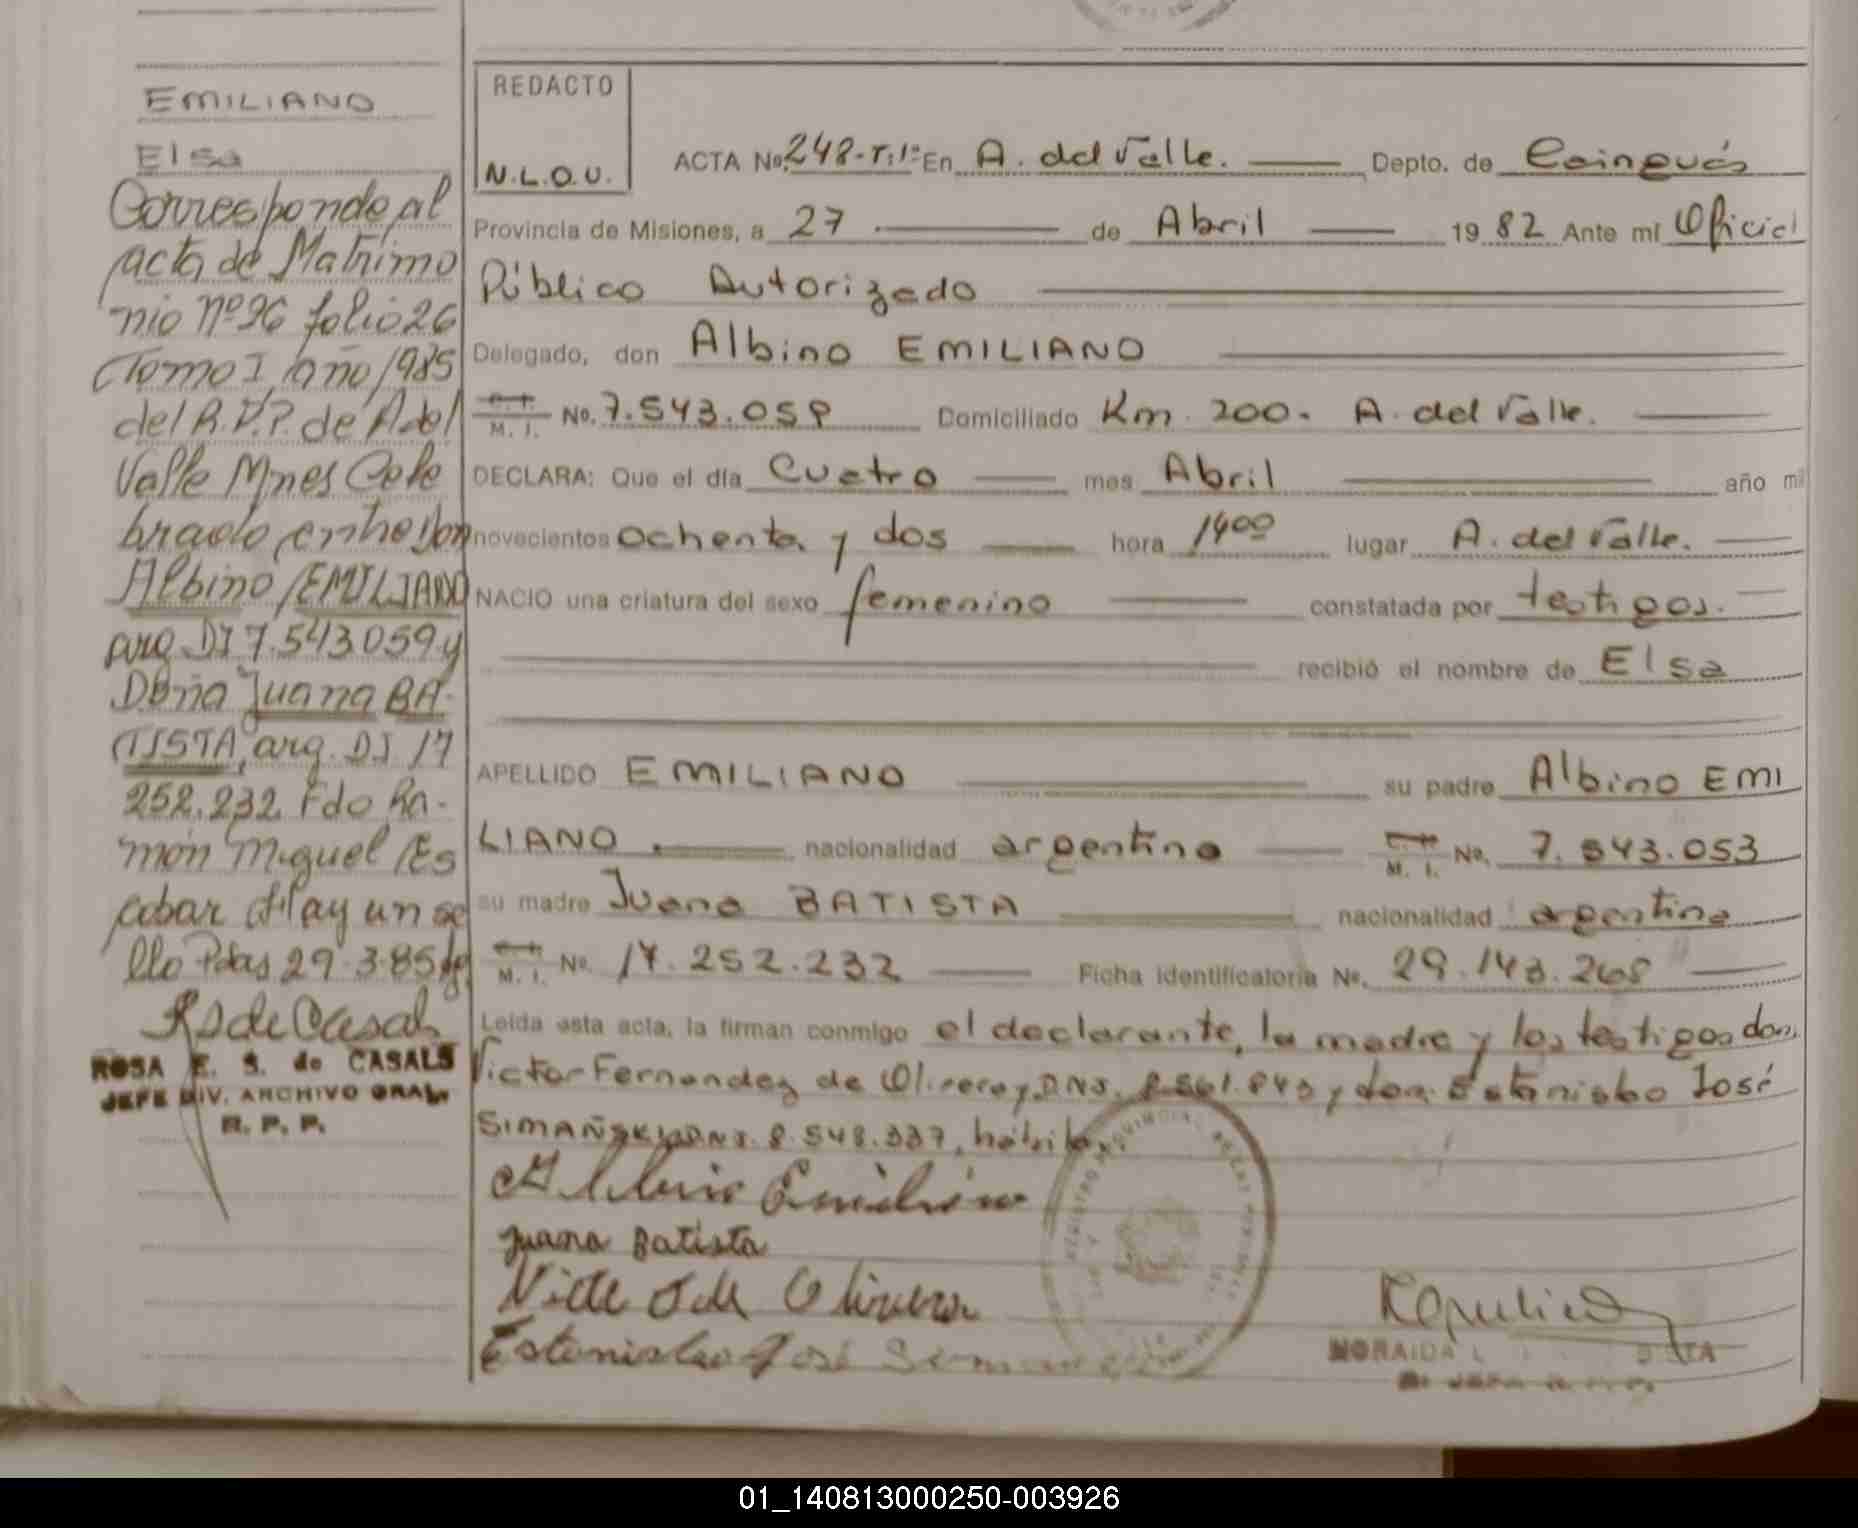 EMILIANO
Elsa
Corresponde al
acta de Matrimo
nio Nº 26 folio 26
Tomo I año 1985
del R.P.P. de A. del
Valle Mnes Cele
brado entre Don
Albino EMILIANO
arg. DI 7.543.059 y
Doña Juana BA-
TISTA, arg. DI 17
252.232 Fdo Ra-
món Miguel Es
cobar Hay un se
llo Pdas 29-3-85
ROSA E. S. de CASALS
JEFE DIV. ARCHIVO GRAL.
R. P. P.
REDACTO
N.L.O.U.
ACTA No. 248-T:1º En A. del Valle. Depto. de Cainguás
Provincia de Misiones, a 27 de Abril 19 82 Ante mí Oficial
Público Autorizado
Delegado, don Albino EMILIANO
M. I. No. 7.543.059 Domiciliado Km. 200- A. del Valle.
DECLARA: Que el día Cuatro mes Abril año mil
novecientos ochenta y dos hora 1400 lugar A. del Valle.
NACIO una criatura del sexo femenino constatada por testigos.
recibió el nombre de Elsa
APELLIDO EMILIANO su padre Albino EMI
LIANO nacionalidad argentina M. I. No. 7.543.053
su madre Juana BATISTA nacionalidad argentina
M. I. No. 17.252.232 Ficha identificatoria No. 29.143.268
Leída esta acta, la firman conmigo el declarante, la madre y los testigos don
Victor Fernandez de Olivera, D.N.I. 8.561.843 y don Estanislao José
SIMAÑSKI, D.N.I. 8.548.337, hábiles.
Albino Emiliano
Juana Batista
Estanislao José
NORAIDA L